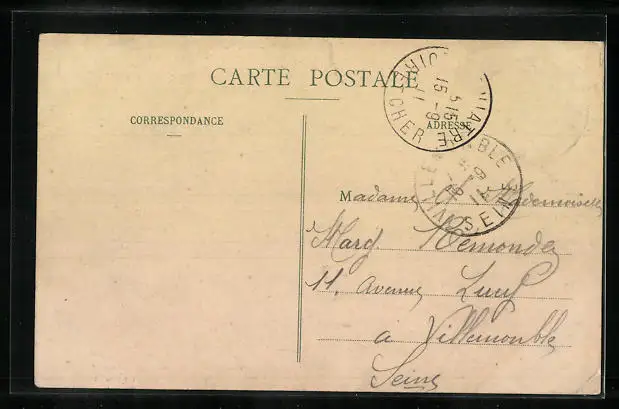 CARTE POSTALE
CORRESPONDANCE
ADRESSE
LOIR-ET-CHER
15 -9
11
SEINE
Madame Mademoiselle
Marg Remonde
11, Avenue Lucy
a Villemomble
Seine